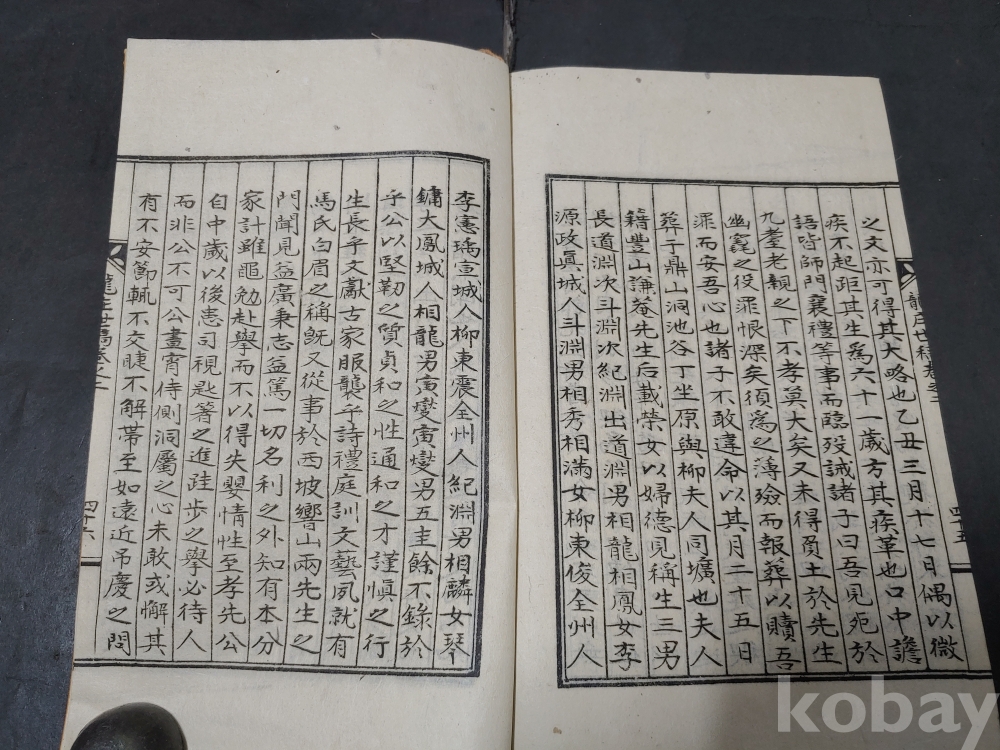 之文亦可得其大略也乙丑三月十七日偶以微
疾不起距其生爲六十一歲方其疾革也口中譫
語皆師門襄禮等事而臨歿誡諸子曰吾見死於
九耋老親之下不孝莫大矣又未得負土於先生
幽竁之役罪恨深矣須爲之薄殮而報葬以贖吾
罪而安吾心也諸子不敢違命以其月二十五日
葬于鼎山洞池谷丁坐原與柳夫人同壙也夫人
籍豐山謙菴先生后載榮女以婦德見稱生三男
長道淵次斗淵次紀淵出道淵男相龍相鳳女李
源政眞城人斗淵男相秀相滿女柳東俊全州人
四十五
李憲瑀宣城人柳東震全州人紀淵男相麟女琴
鏞大鳳城人相龍男寅燮寅燮男五圭餘不錄於
乎公以堅勒之質貞和之性通和之才謹愼之行
生長乎文獻古家服襲乎詩禮庭訓文藝夙就有
馬氏白眉之稱旣又從事於西坡響山兩先生之
門聞見益廣秉志益篤一切名利之外知有本分
家計雖黽勉赴擧而不以得失嬰情性至孝先公
自中歲以後患司視匙箸之進跬步之擧必待人
而非公不可公晝宵侍側洞屬之心未敢或懈其
有不安節輒不交睫不解帶至如遠近吊慶之問
四十六
kobay